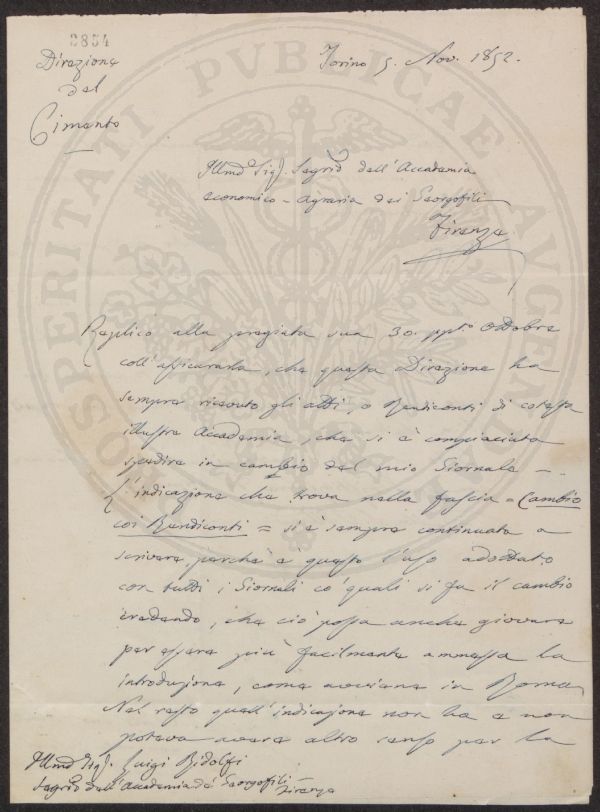 2854
Direzione
del
Cimento
Torino 5. Nov. 1852.
Illmo Sigr. Segrio dell'Accademia
economico-agraria dei Georgofili
Firenze
Replico alla pregiata sua 30. ppto. Ottobre
coll'assicurarla, che questa Direzione ha
sempre ricevuto gli atti, o Rendiconti di cotesta
illustre Accademia, che si è compiaciuta
spedire in cambio del mio Giornale –
L'indicazione che trova nella fascia = Cambio
coi Rendiconti = si è sempre continuata a
scrivere, perchè è questo l'uso adottato
con tutti i Giornali co' quali si fa il cambio
credendo, che ciò possa anche giovare
per essere più facilmente ammessa la
introduzione, come avviene in Roma
Nel resto quell'indicazione non ha e non
poteva avere altro senso per la
Illmo Sigr. Luigi Ridolfi
Segrio dell'Accademia dei Georgofili –
Firenze
PROSPERITATI PVBLICAE AVGENDAE